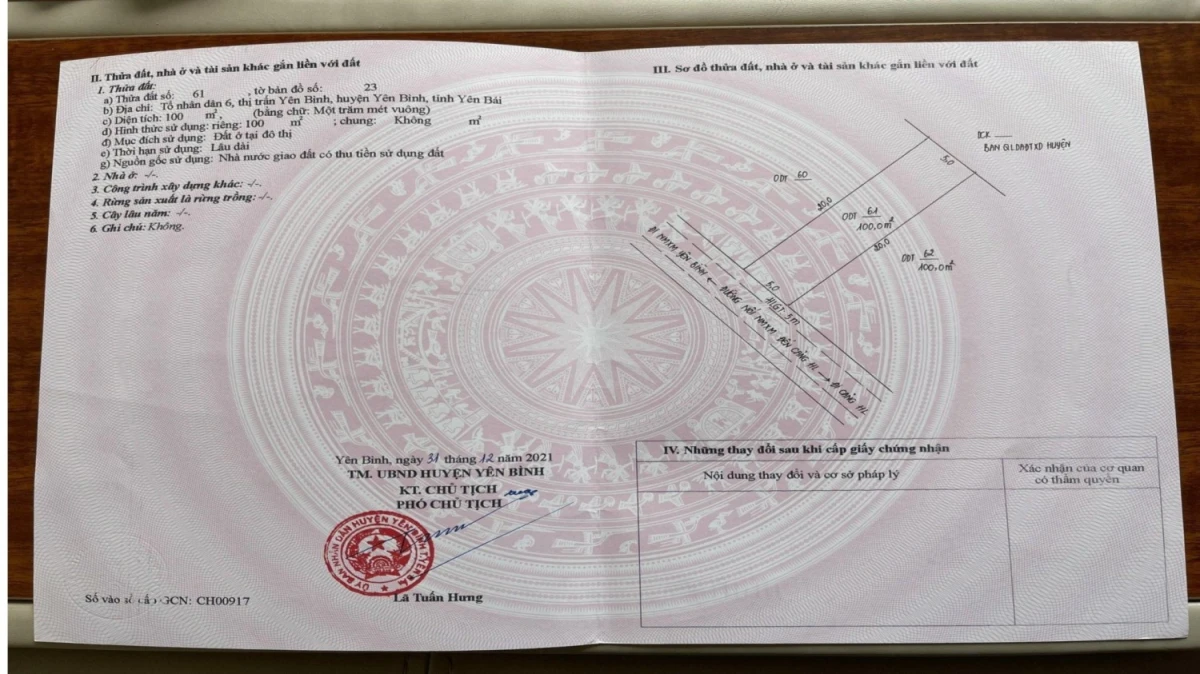 II. Thửa đất, nhà ở và tài sản khác gắn liền với đất
1. Thửa đất:
a) Thửa đất số: 61 , tờ bản đồ số: 23
b) Địa chỉ: Tổ nhân dân 6, thị trấn Yên Bình, huyện Yên Bình, tỉnh Yên Bái
c) Diện tích: 100 m², (bằng chữ: Một trăm mét vuông)
d) Hình thức sử dụng: riêng: 100 m² ; chung: Không m²
đ) Mục đích sử dụng: Đất ở tại đô thị
e) Thời hạn sử dụng: Lâu dài
g) Nguồn gốc sử dụng: Nhà nước giao đất có thu tiền sử dụng đất
2. Nhà ở: -/-.
3. Công trình xây dựng khác: -/-.
4. Rừng sản xuất là rừng trồng: -/-.
5. Cây lâu năm: -/-.
6. Ghi chú: Không.
Yên Bình, ngày 31 tháng 12 năm 2021
TM. UBND HUYỆN YÊN BÌNH
KT. CHỦ TỊCH
PHÓ CHỦ TỊCH
ỦY BAN NHÂN DÂN HUYỆN YÊN BÌNH
Lã Tuấn Hưng
Số vào sổ cấp GCN: CH00917
III. Sơ đồ thửa đất, nhà ở và tài sản khác gắn liền với đất
BCK
BAN QLDAĐTXD HUYỆN
5,0
ODT 60
20,0
ODT 61
100,0m²
20,0
ODT 62
100,0m²
5,0
HLGT 3m
ĐI NMXM YÊN BÌNH ← ĐƯỜNG NỐI NMXM ĐẾN CẢNG HL → ĐI CẢNG HL
IV. Những thay đổi sau khi cấp giấy chứng nhận
Nội dung thay đổi và cơ sở pháp lý
Xác nhận của cơ quan
có thẩm quyền